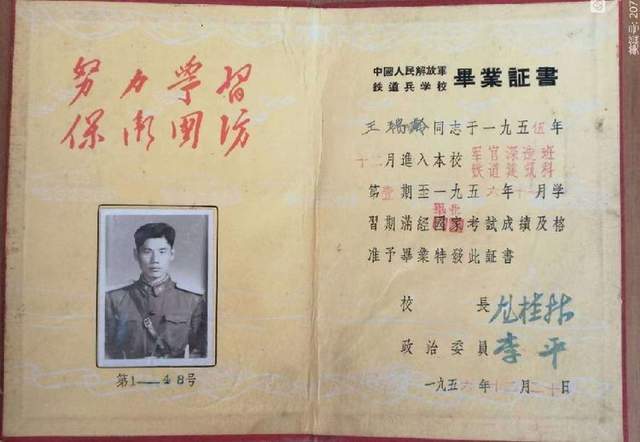 努力学習
保衛国防
第1—48号
中國人民解放軍
鉄道兵学校
畢業証書
王瑞龄同志于一九五伍年
十二月進入本校军官深造班
铁道建筑科
第壹期至一九五六年十一月学
習期滿經國家考試成績及格
准予畢業特發此証書
校長
政治委員 李平
一九五六年十二月二十日